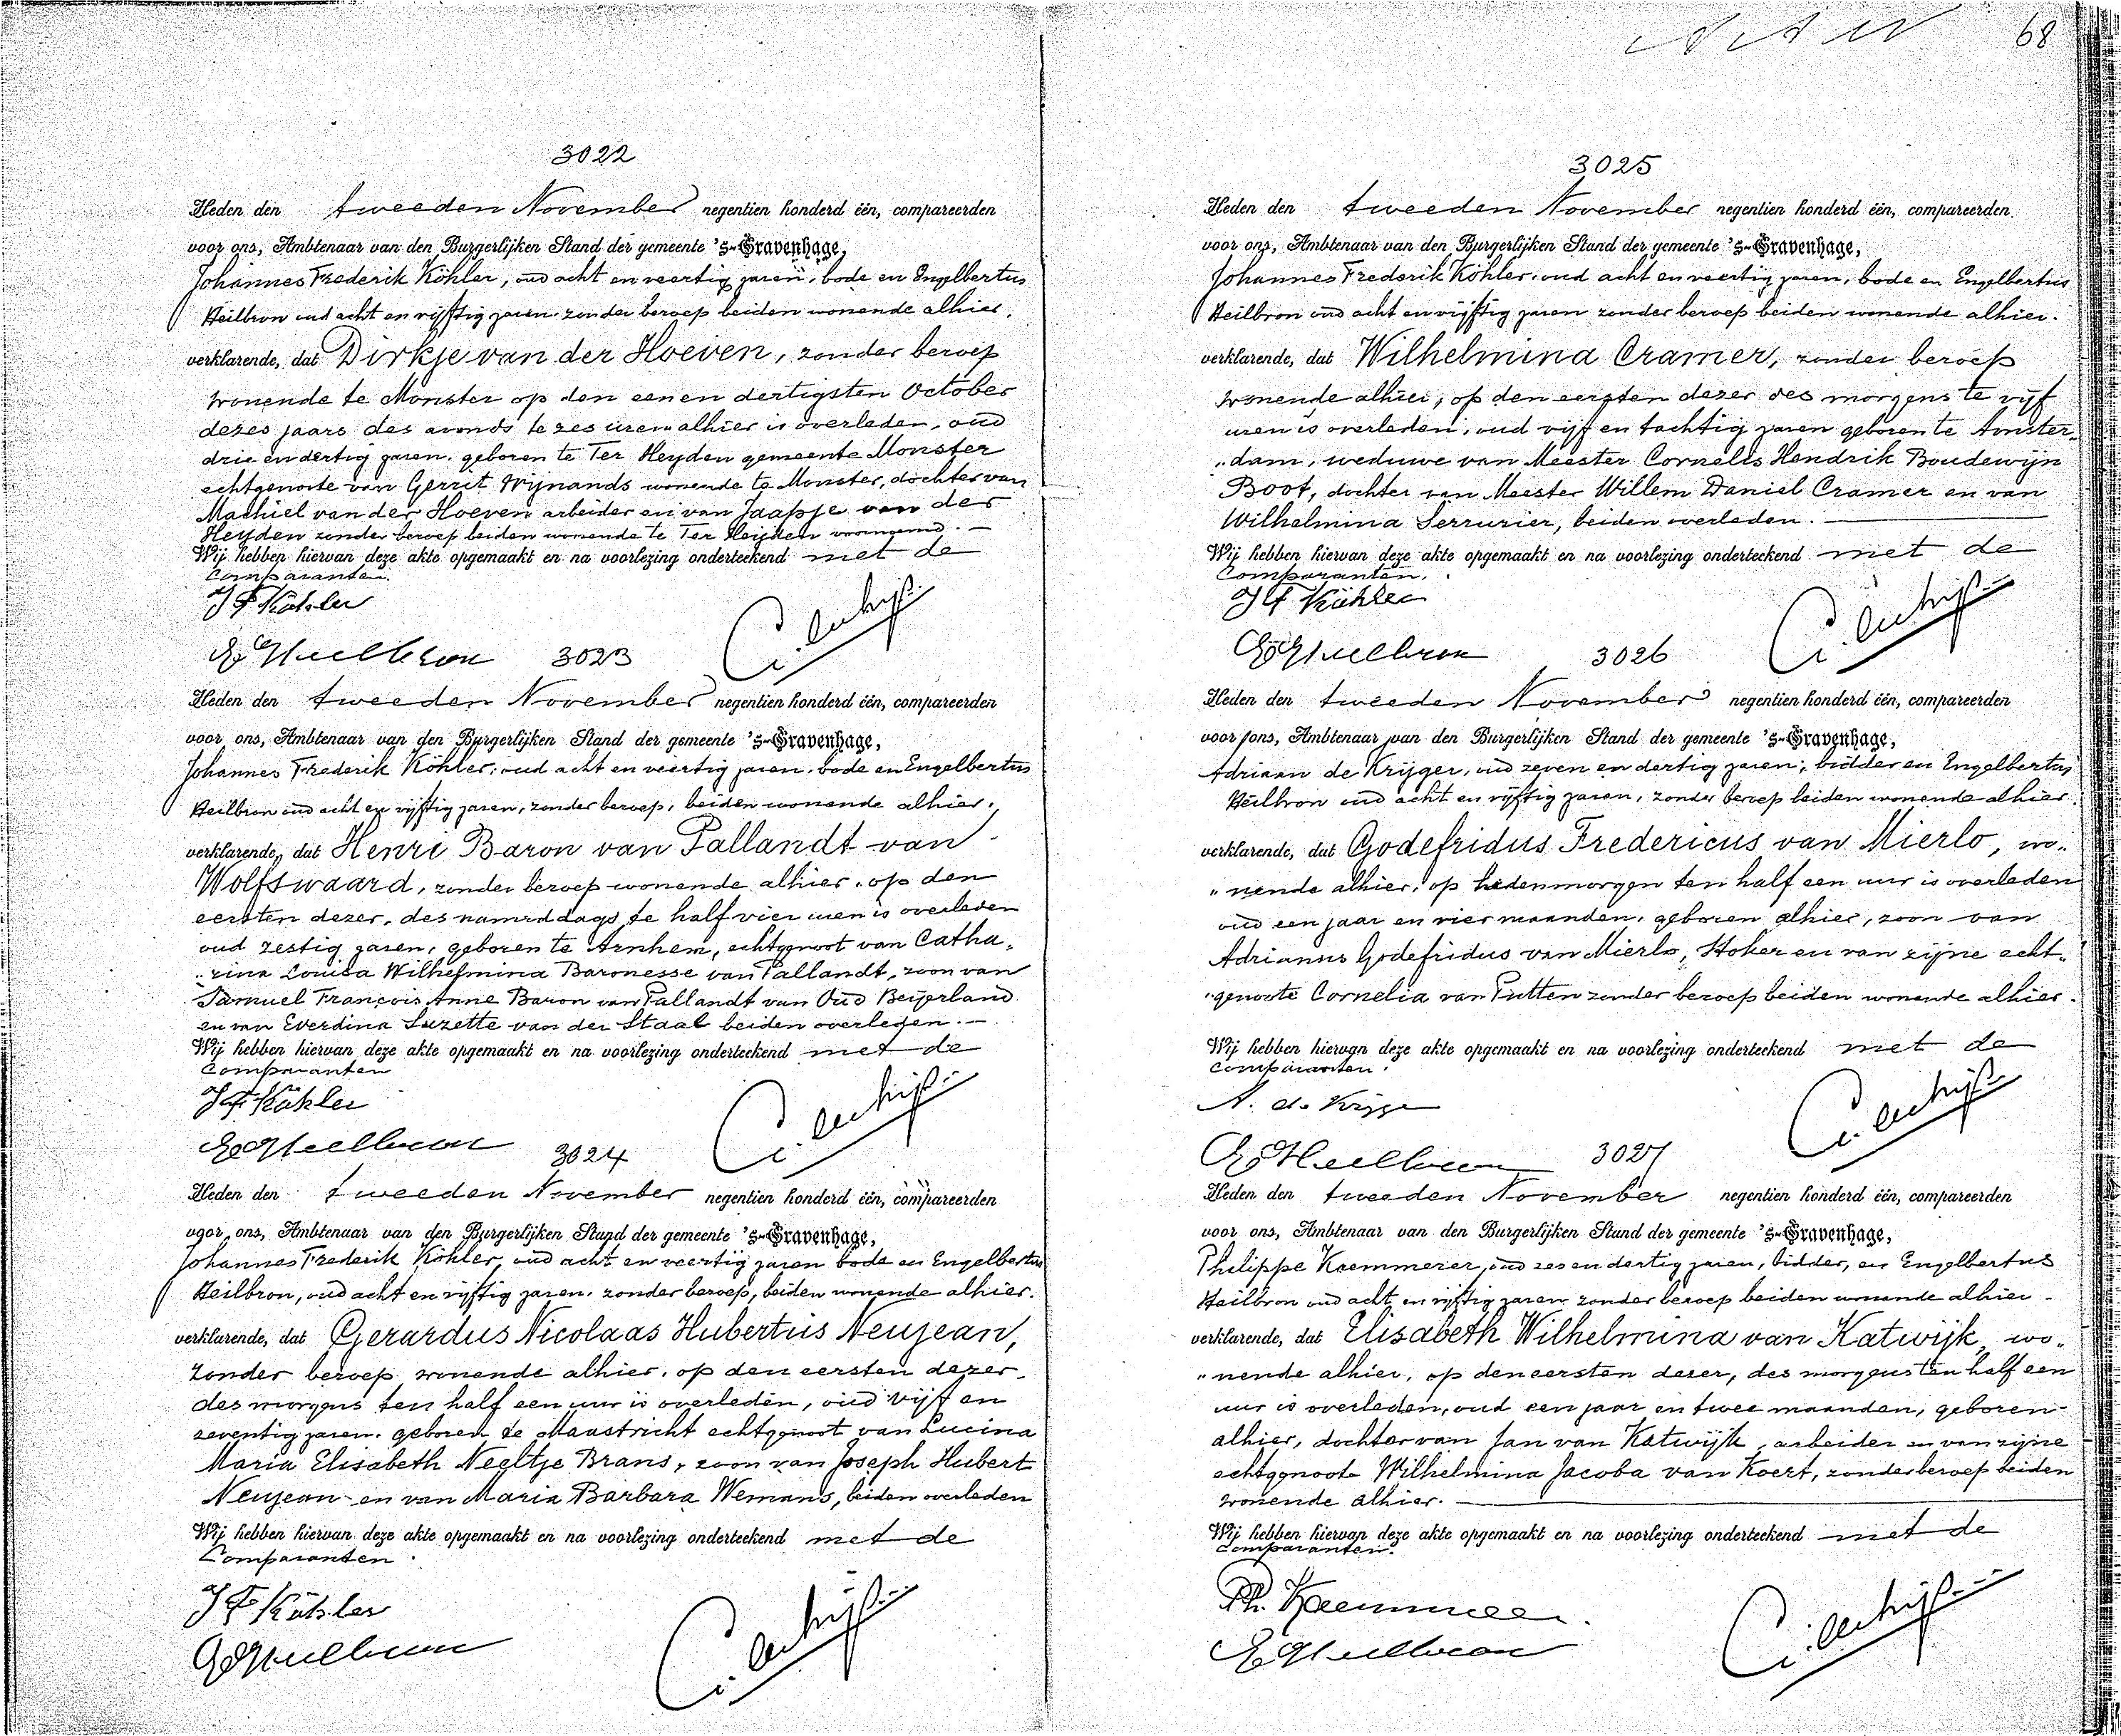 3022
Heden den tweeden November negentien honderd één, compareerden
voor ons, Ambtenaar van den Burgerlijken Stand der gemeente 's-Gravenhage,
Johannes Frederik Köhler, oud acht en veertig jaren, bode en Engelbertus
Heilbron oud acht en vijftig jaren zonder beroep beiden wonende alhier,
verklarende, dat Dirkje van der Hoeven, zonder beroep
wonende te Monster op den eenen dertigsten October
dezes jaars des avonds te zes uren alhier is overleden, oud
drie en dertig jaren, geboren te Ter Heyden gemeente Monster
echtgenoote van Gerrit Wijnands wonende te Monster, dochter van
Machiel van der Hoeven arbeider en van Jaapje van der
Heyden zonder beroep beiden wonende te Ter Heyden voornoemd.
Wij hebben hiervan deze akte opgemaakt en na voorlezing onderteekend met de
Comparanten.
J F Köhler
E Heilbron
3023
Heden den tweeden November negentien honderd één, compareerden
voor ons, Ambtenaar van den Burgerlijken Stand der gemeente 's-Gravenhage,
Johannes Frederik Köhler, oud acht en veertig jaren, bode en Engelbertus
Heilbron oud acht en vijftig jaren, zonder beroep, beiden wonende alhier,
verklarende, dat Henri Baron van Pallandt van
Wolfswaard, zonder beroep wonende alhier, op den
eersten dezer, des namiddags te half vier uren is overleden
oud zestig jaren, geboren te Arnhem, echtgenoot van Catha-
"rina Louisa Wilhelmina Baronesse van Pallandt, zoon van
Samuel François Anne Baron van Pallandt van Oud Beijerland
en van Everdina Suzette van der Staal beiden overleden.
Wij hebben hiervan deze akte opgemaakt en na voorlezing onderteekend met de
Comparanten
J F Köhler
E Heilbron
3024
Heden den tweeden November negentien honderd één, compareerden
voor ons, Ambtenaar van den Burgerlijken Stand der gemeente 's-Gravenhage,
Johannes Frederik Köhler, oud acht en veertig jaren bode en Engelbertus
Heilbron, oud acht en vijftig jaren, zonder beroep, beiden wonende alhier.
verklarende, dat Gerardus Nicolaas Hubertus Neujean,
zonder beroep wonende alhier, op den eersten dezer
des morgens ten half een uur is overleden, oud vijf en
zeventig jaren, geboren te Maastricht echtgenoot van Lucina
Maria Elisabeth Neeltje Brans, zoon van Joseph Hubert
Neujean en van Maria Barbara Wemans, beiden overleden
Wij hebben hiervan deze akte opgemaakt en na voorlezing onderteekend met de
Comparanten.
J F Köhler
E Heilbron
68
3025
Heden den tweeden November negentien honderd één, compareerden
voor ons, Ambtenaar van den Burgerlijken Stand der gemeente 's-Gravenhage,
Johannes Frederik Köhler, oud acht en veertig jaren, bode en Engelbertus
Heilbron oud acht en vijftig jaren zonder beroep beiden wonende alhier.
verklarende, dat Wilhelmina Cramer, zonder beroep
wonende alhier, op den eersten dezer des morgens te vijf
uren is overleden, oud vijf en tachtig jaren geboren te Amster-
"dam, weduwe van Meester Cornelis Hendrik Boudewijn
Boot, dochter van Meester Willem Daniel Cramer en van
Wilhelmina Serrurier, beiden overleden.
Wij hebben hiervan deze akte opgemaakt en na voorlezing onderteekend met de
Comparanten.
J F Köhler
E Heilbron
3026
Heden den tweeden November negentien honderd één, compareerden
voor ons, Ambtenaar van den Burgerlijken Stand der gemeente 's-Gravenhage,
Adriaan de Krijger, oud zeven en dertig jaren, bidder en Engelbertus
Heilbron oud acht en vijftig jaren, zonder beroep beiden wonende alhier
verklarende, dat Godefridus Fredericus van Mierlo, wo-
"nende alhier, op heden morgen ten half een uur is overleden
oud een jaar en vier maanden, geboren alhier, zoon van
Adrianus Godefridus van Mierlo, Stoker en van zijne echt-
"genoote Cornelia van Putten zonder beroep beiden wonende alhier.
Wij hebben hiervan deze akte opgemaakt en na voorlezing onderteekend met de
Comparanten.
A. de Krijger
E Heilbron
3027
Heden den tweeden November negentien honderd één, compareerden
voor ons, Ambtenaar van den Burgerlijken Stand der gemeente 's-Gravenhage,
Philippe Kaemmerer, oud zes en dertig jaren, bidder, en Engelbertus
Heilbron oud acht en vijftig jaren zonder beroep beiden wonende alhier
verklarende, dat Elisabeth Wilhelmina van Katwijk, wo-
"nende alhier, op den eersten dezer, des morgens ten half een
uur is overleden, oud een jaar en twee maanden, geboren
alhier, dochter van Jan van Katwijk, arbeider en van zijne
echtgenoote Wilhelmina Jacoba van Koert, zonder beroep beiden
wonende alhier.
Wij hebben hiervan deze akte opgemaakt en na voorlezing onderteekend met de
Comparanten.
Ph. Kaemmerer.
E Heilbron